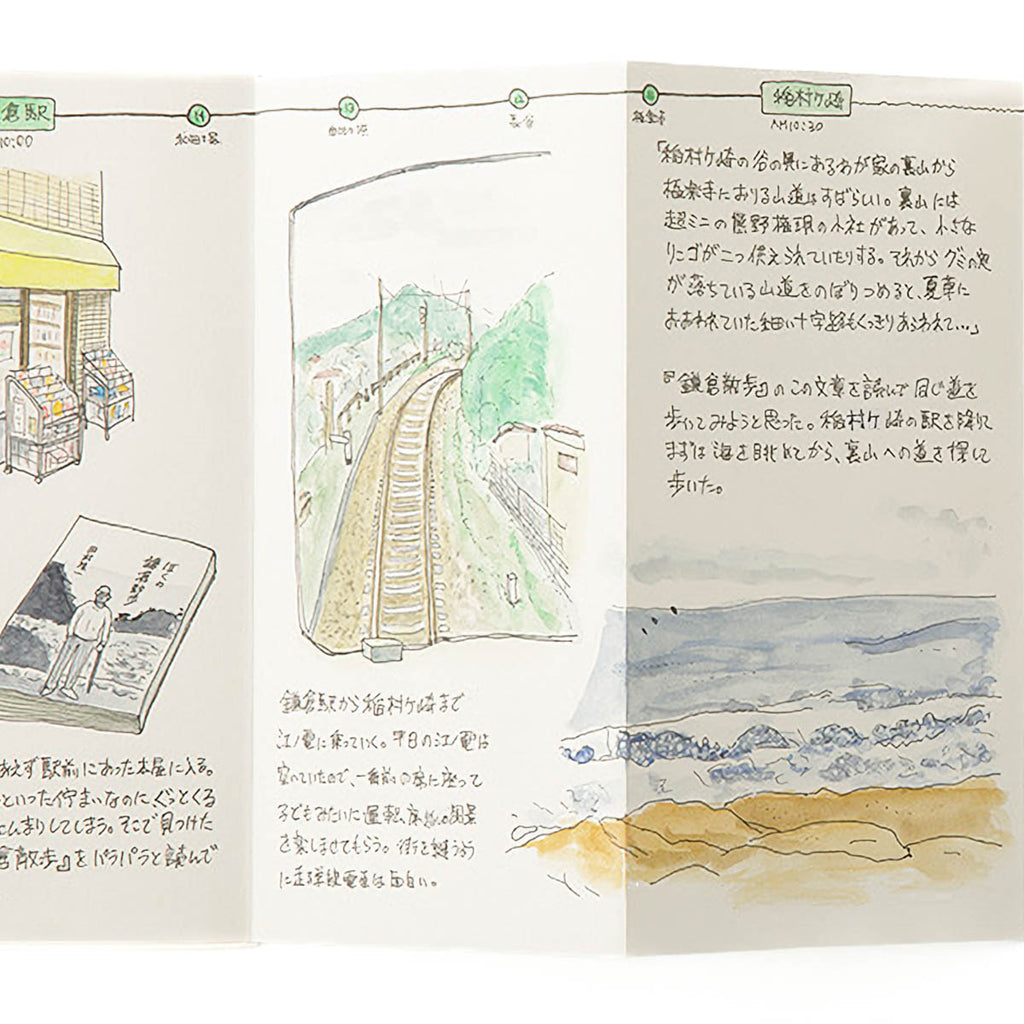 倉駅
10:00
和田塚
由比ヶ浜
長谷
極楽寺
稲村ヶ崎
AM10:30
ぼくの
鎌倉散歩
田村隆一
えず駅前にあった本屋に入る。
といった佇まいなのにぐっとくる
んまりしてしまう。そこで見つけた
倉散歩』をパラパラと読んで
鎌倉駅から稲村ヶ崎まで
江ノ電に乗っていく。平日の江ノ電は
空いていたので、一番前の席に座って
子どもみたいに運転席越しの風景
を楽しませてもらう。街を縫うよう
に走る単線電車は面白い。
「稲村ヶ崎の谷の奥にあるわが家の裏山から
極楽寺におりる山道はすばらしい。裏山には
超ミニの熊野権現の小社があって、小さな
リンゴが二つ供えられていたりする。それからグミの実
が落ちている山道をのぼりつめると、夏草に
おおわれていた細い十字路もくっきりあらわれて…」
『鎌倉散歩』のこの文章を読んで同じ道を
歩いてみようと思った。稲村ヶ崎の駅を降りて
まずは海を眺めてから、裏山への道を探して
歩いた。